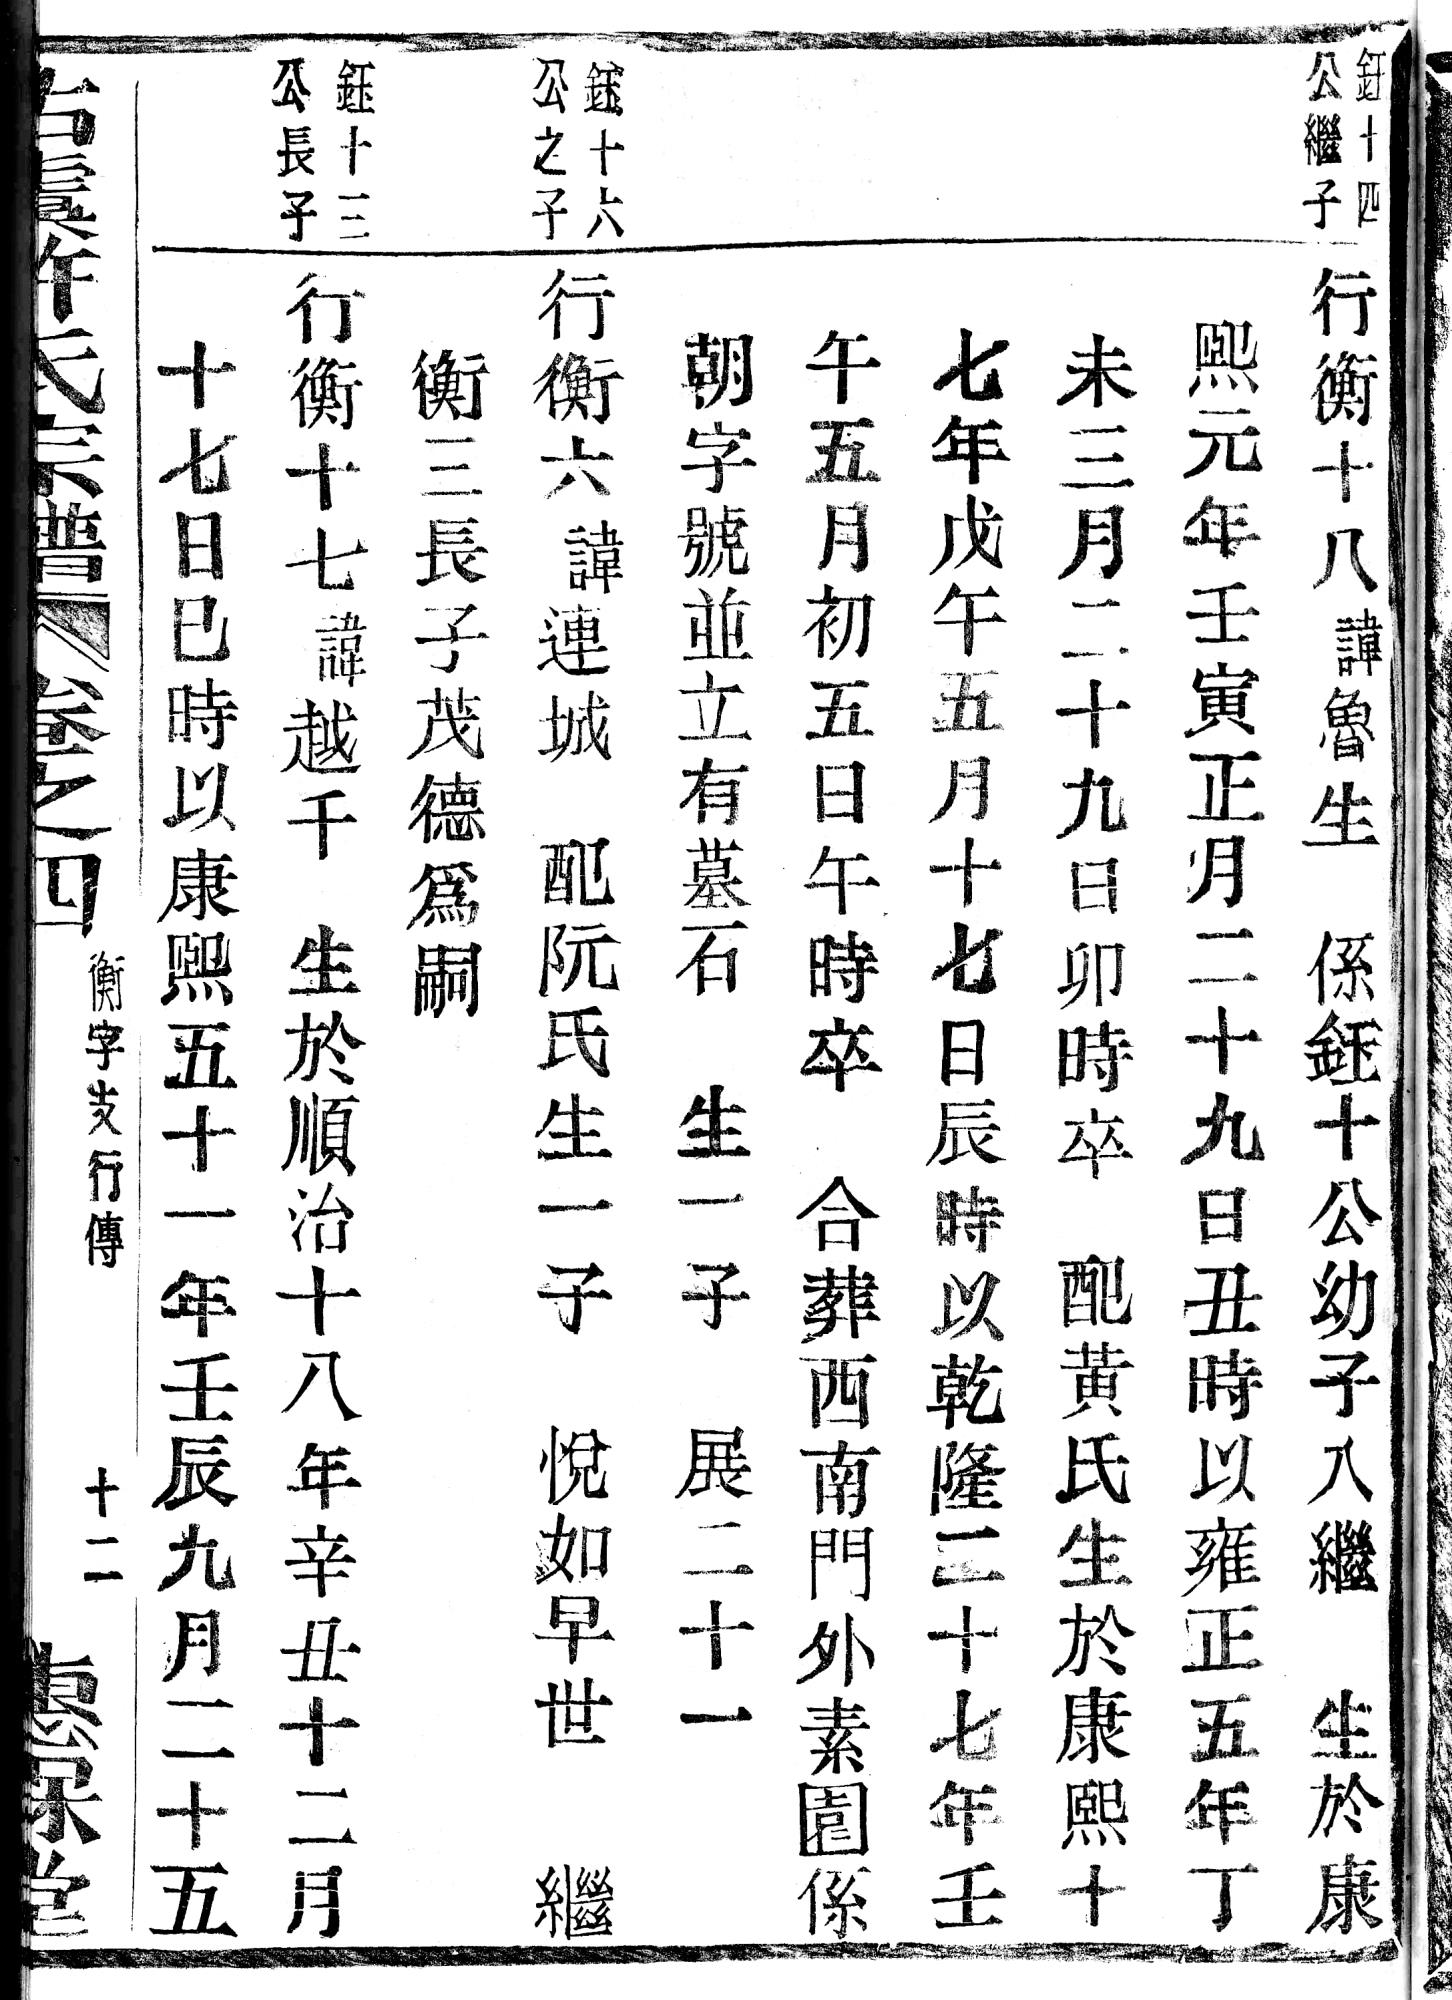 鈺十四
公繼子
行衡十八諱魯生　係鈺十公幼子入繼　生於康
熙元年壬寅正月二十九日丑時以雍正五年丁
未三月二十九日卯時卒　配黃氏生於康熙十
七年戊午五月十七日辰時以乾隆二十七年壬
午五月初五日午時卒　合葬西南門外素園係
朝字號並立有墓石　生一子　展二十一
鈺十六
公之子
行衡六諱連城　配阮氏生一子　悅如早世　繼
衡三長子茂德爲嗣
鈺十三
公長子
行衡十七諱越千　生於順治十八年辛丑十二月
十七日巳時以康熙五十一年壬辰九月二十五
古虞許氏宗譜　卷之四　衡字支行傳　十二　惇保堂